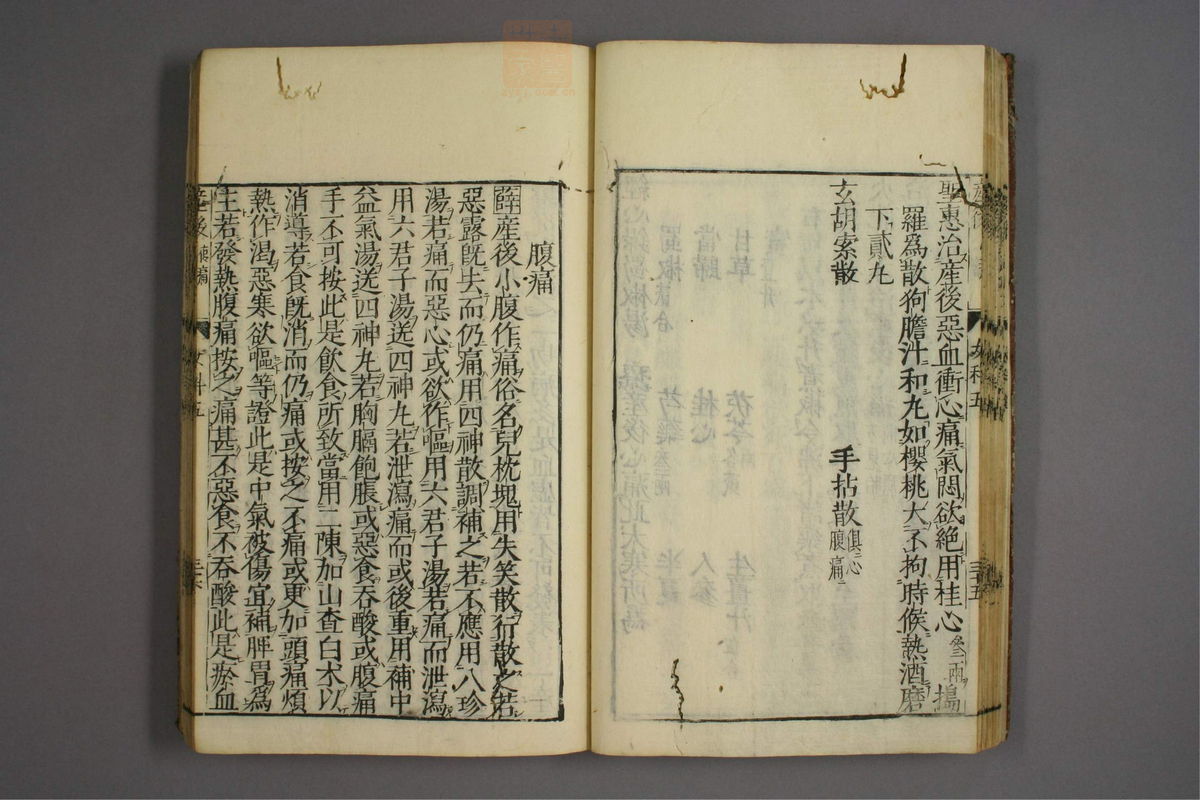 聖惠治產後惡血衝心痛氣悶欲絕用桂心叄兩搗
羅為散狗膽汁和丸如櫻桃大不拘時候熱酒磨
下貳丸
玄胡索散 手拈散俱心腹痛
女科五 三十五
腹痛
薛產後小腹作痛俗名兒枕塊用失笑散行散之若
惡露既去而仍痛用四神散調補之若不應用八珍
湯若痛而惡心或欲作嘔用六君子湯若痛而泄瀉
用六君子湯送四神丸若泄瀉痛而或後重用補中
益氣湯送四神丸若胸膈飽脹或惡食吞酸或腹痛
手不可按此是飲食所致當用二陳加山查白朮以
消導若食既消而仍痛或按之不痛或更加頭痛煩
熱作渴惡寒欲嘔等證此是中氣被傷宜補脾胃為
主若發熱腹痛按之痛甚不惡食不吞酸此是瘀血
產後腹痛 女科五